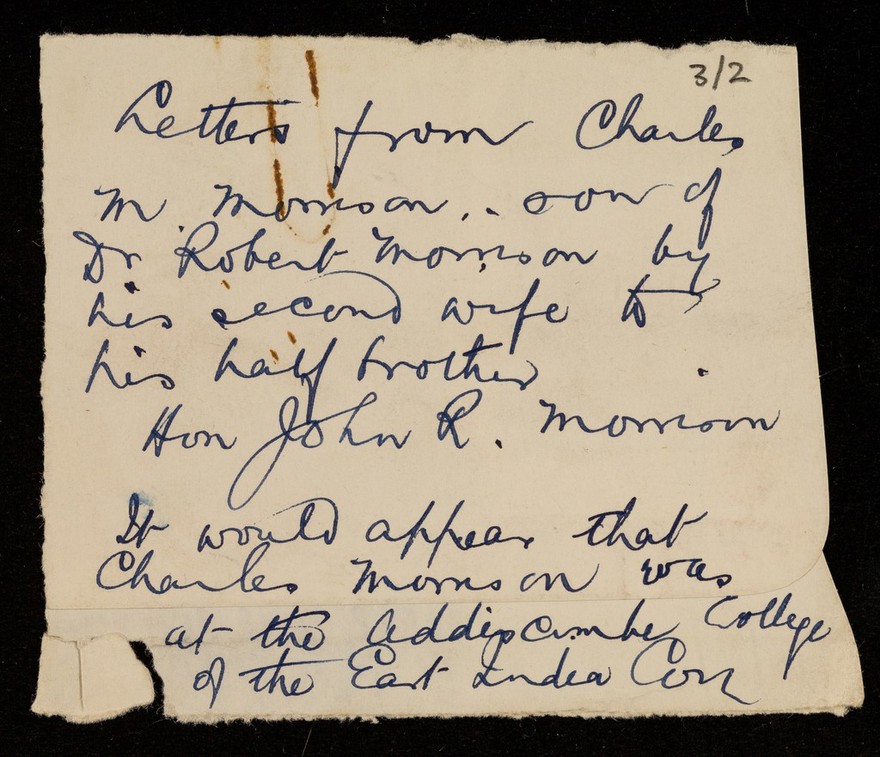 3/2
Letters from Charles
M. Morrison.. son of
Dr Robert Morrison by
his second wife to
his half brother
Hon John R. Morrison
It would appear that
Charles Morrison was
at the Addiscombe College
of the East India Coy